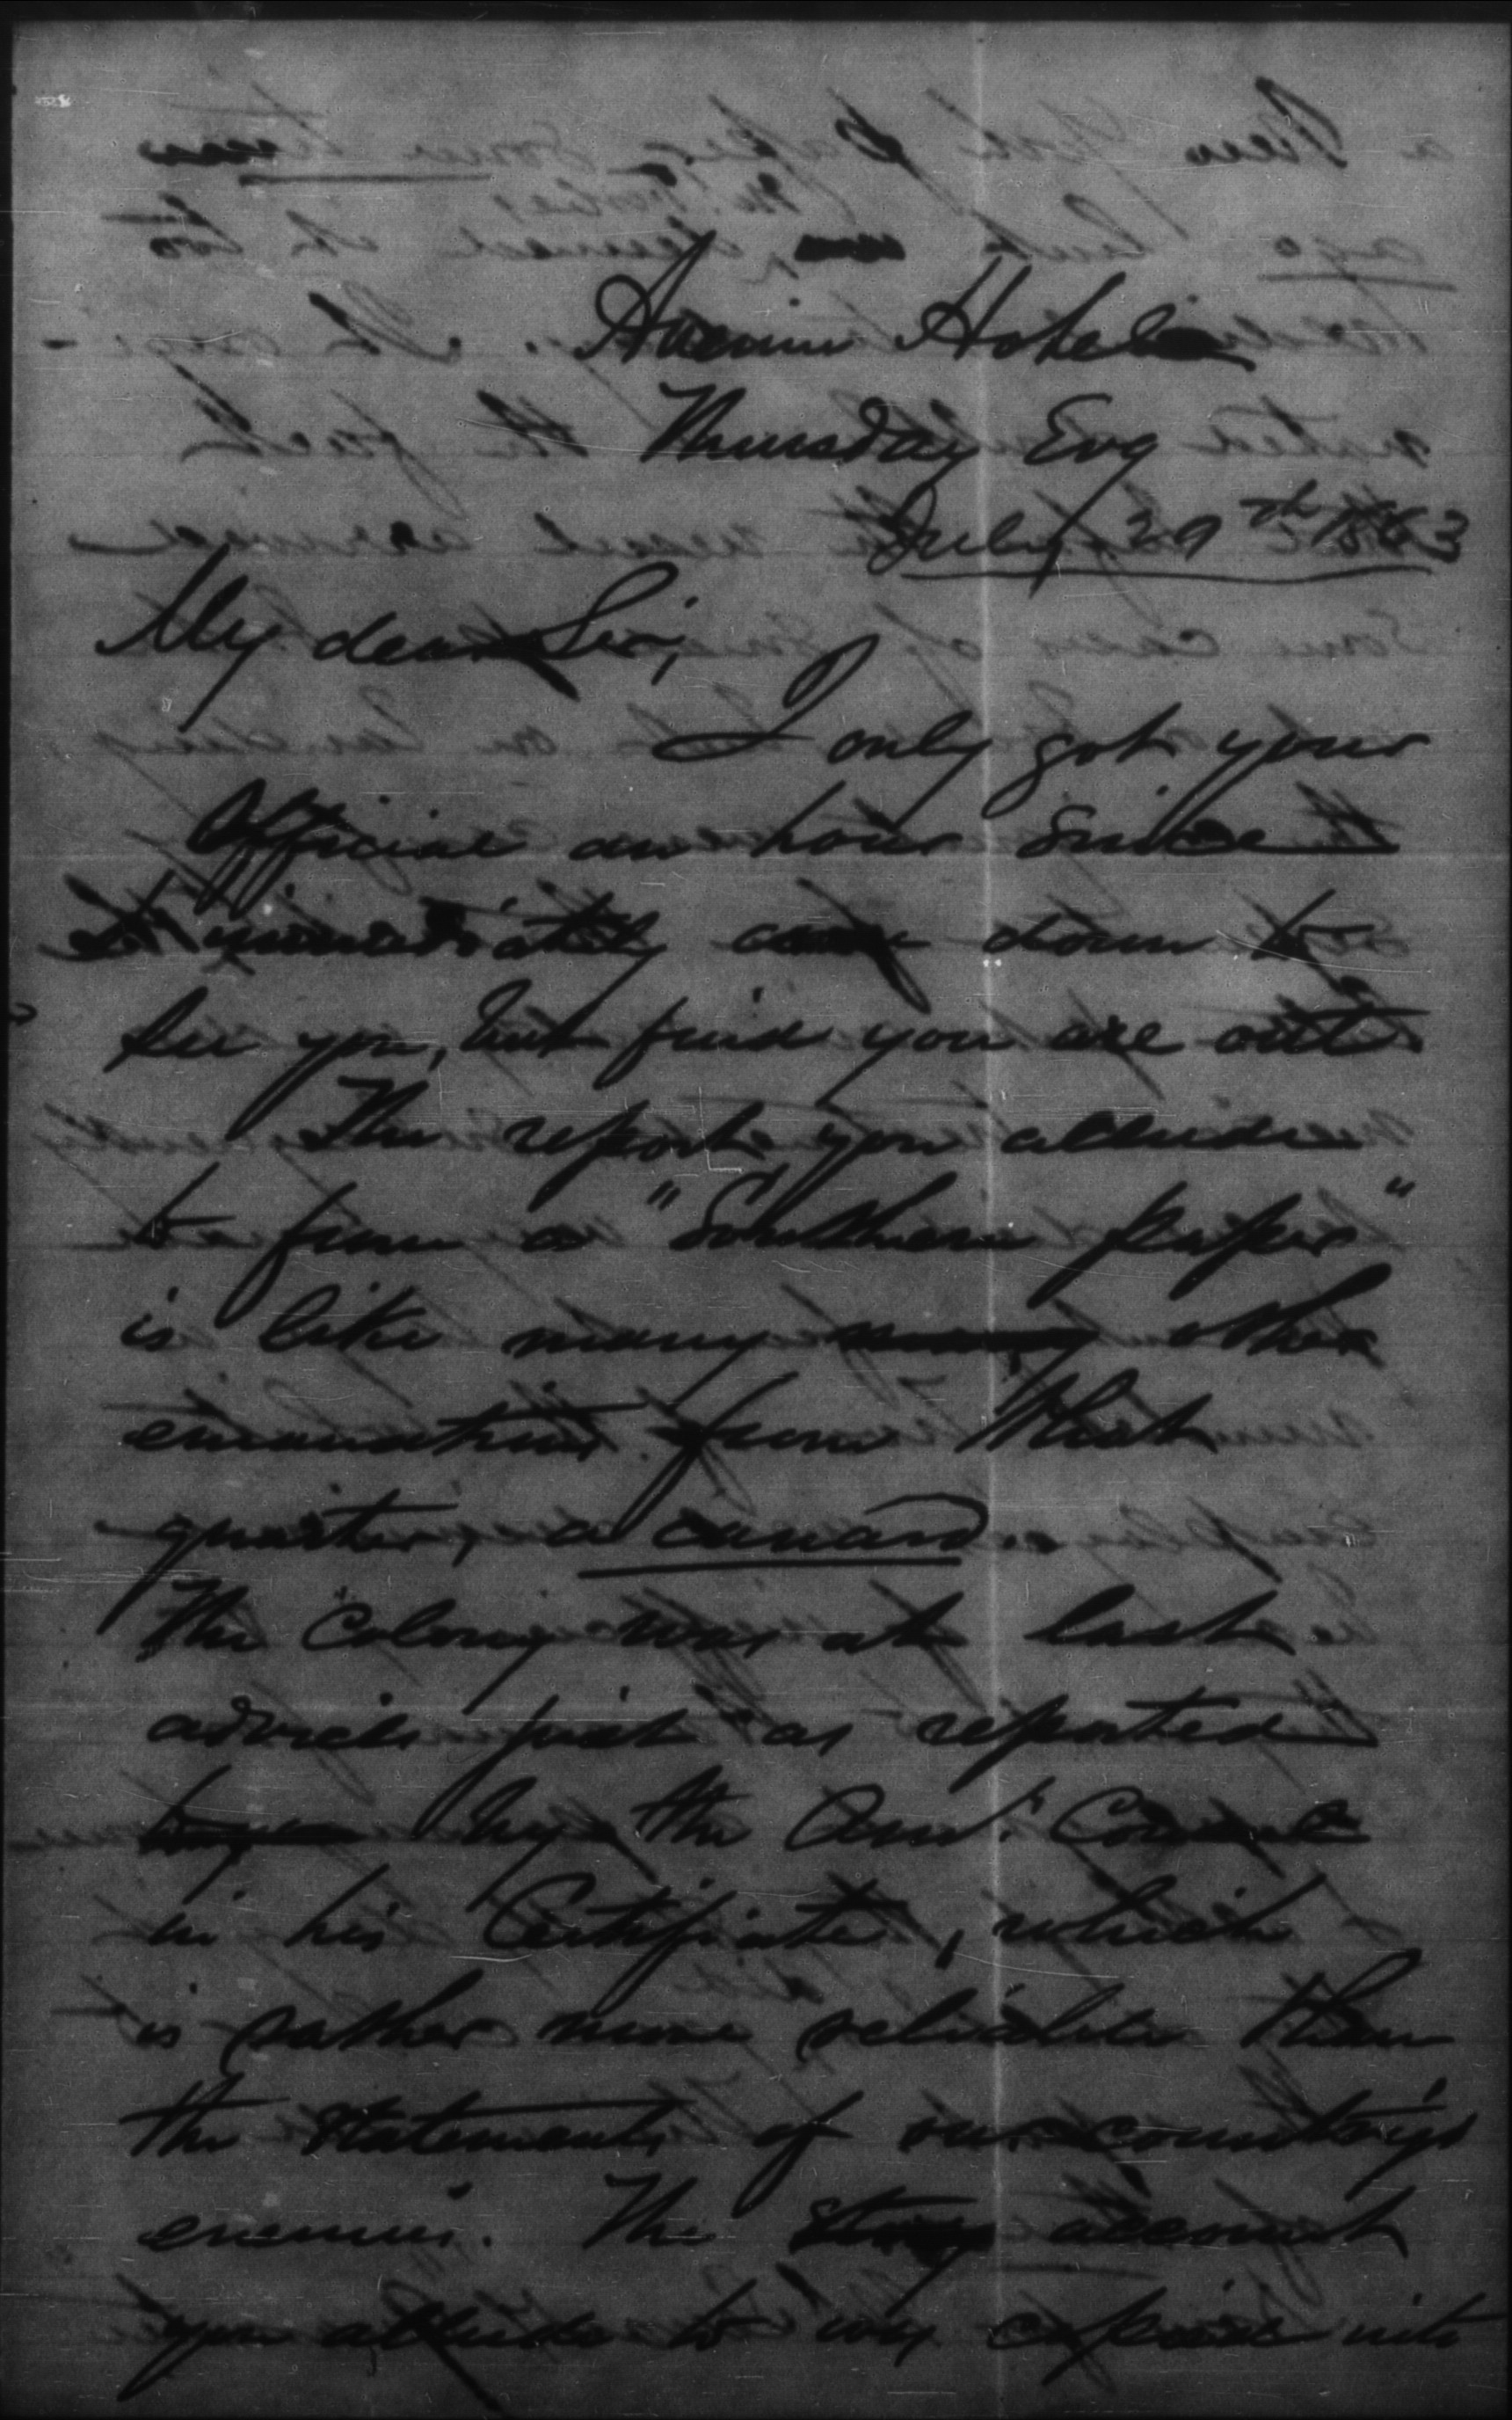 Avenue Hotel
Thursday Evg
July 29th 1863
My dear Sir,
I only got your
official an hour since
& immediately came down to
see you, but find you are out.
The report you allude
to from a "Southern paper"
is like many many other
emanations from that
quarter, a canard.
The Colony was at last
advices just as reported
by the Am. Consul
in his Certificate, which
is rather more reliable than
the statements of our country's
enemies. The story account
you allude to was copied into